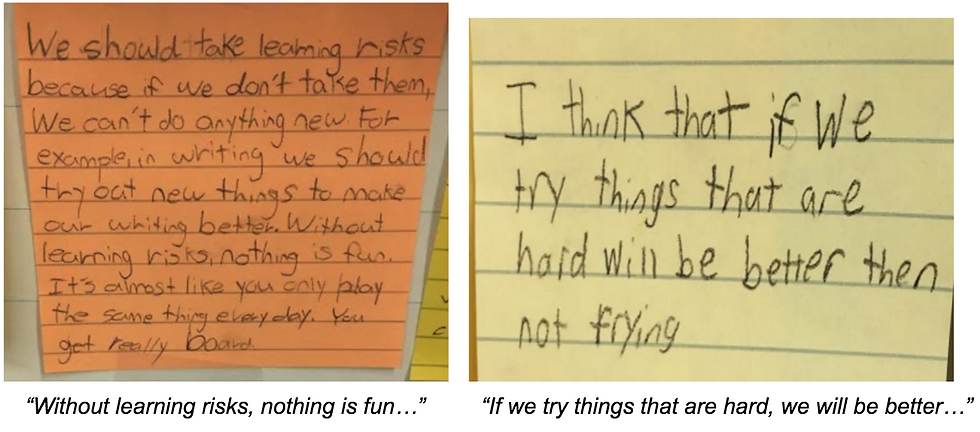 We should take learning risks
because if we don't take them,
We can't do anything new. For
example, in writing we should
try out new things to make
our writing better. Without
learning risks, nothing is fun.
It's almost like you only play
the same thing every day. You
get really board.
I think that if We
try things that are
hard will be better then
not trying
“Without learning risks, nothing is fun…”
“If we try things that are hard, we will be better…”